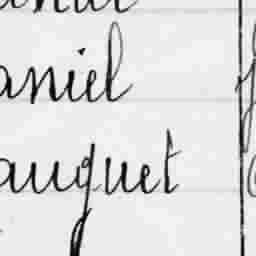 aniel
auquet